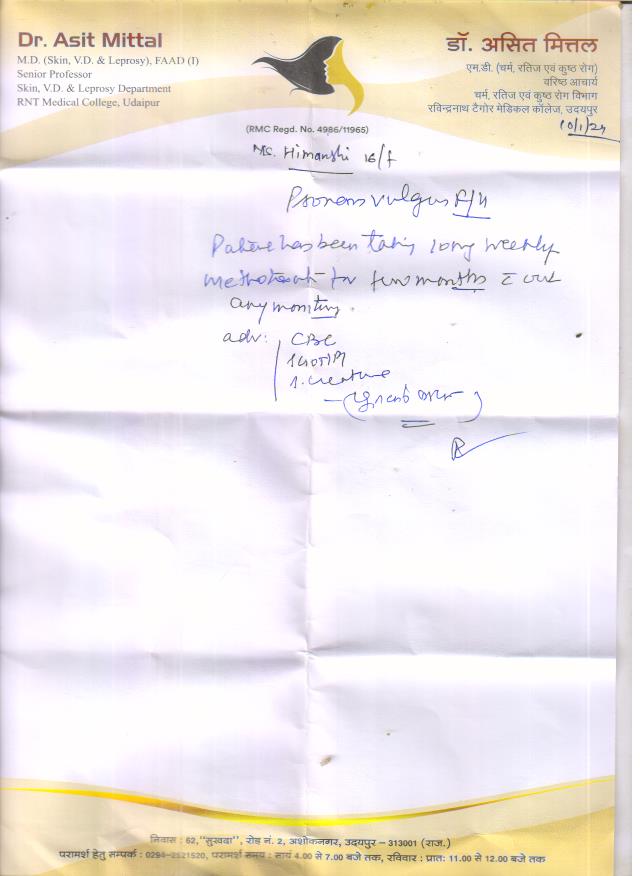 Dr. Asit Mittal
M.D. (Skin, V.D. & Leprosy), FAAD (I)
Senior Professor
Skin, V.D. & Leprosy Department
RNT Medical College, Udaipur
(RMC Regd. No. 4986/11965)
डॉ. असित मित्तल
एम.डी. (चर्म, रतिज एवं कुष्ठ रोग)
वरिष्ठ आचार्य
चर्म, रतिज एवं कुष्ठ रोग विभाग
रविन्द्रनाथ टैगोर मेडिकल कॉलेज, उदयपुर
10/1/24
Ms. Himanshi 16/f
Psoriasis vulgaris F/U
Patient has been taking 10mg weekly
methotrexate for two months c out
any monitoring.
adv: CBC
S. creatinine
निवास : 62,"सुखदा", रोड़ नं. 2, अशोकनगर, उदयपुर – 313001 (राज.)
परामर्श हेतु सम्पर्क : 0294-2521520, परामर्श समय : सायं 4.00 से 7.00 बजे तक, रविवार : प्रातः 11.00 से 12.00 बजे तक